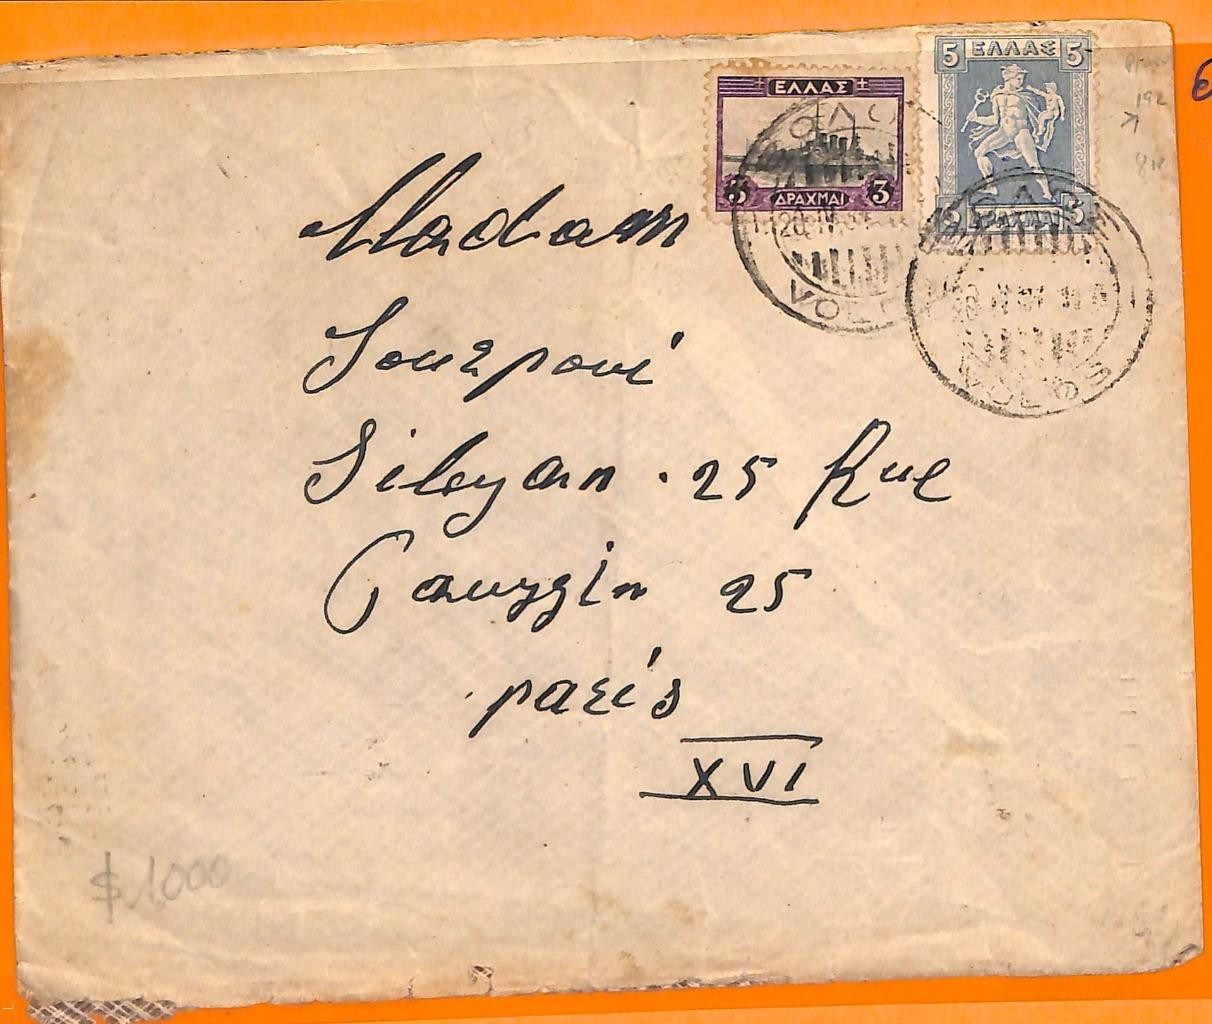 ΕΛΛΑΣ
3 ΔΡΑΧΜΑΙ 3
5 ΕΛΛΑΣ 5
5 ΔΡΑΧΜΑΙ 5
VOLOS
Madam
Sourpoui
Sibyan . 25 Rue
Gauzzin 25
paris
XVI
$1000